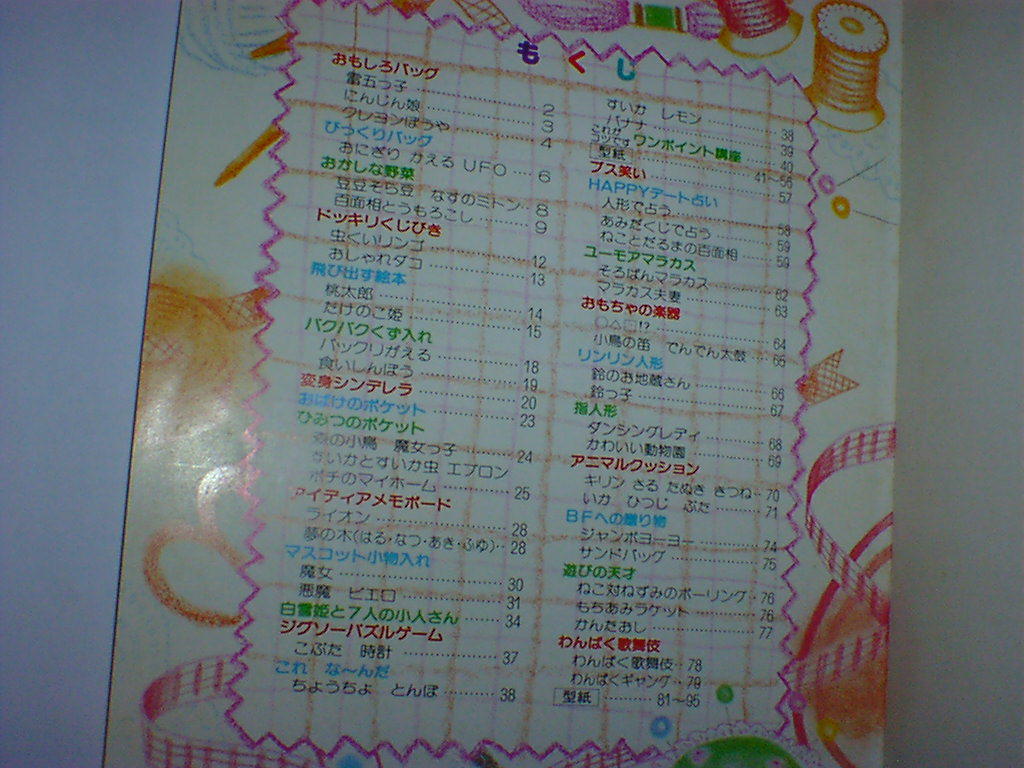 もくじ
おもしろバッグ
雷五つ子 2
にんじん娘 3
クレヨンぼうや 4
びっくりバッグ
おにぎり かえる UFO 6
おかしな野菜
豆豆そら豆 なすのミトン 8
百面相とうもろこし 9
ドッキリくじびき
虫くいリンゴ 12
おしゃれダコ 13
飛び出す絵本
桃太郎 14
たけのこ姫 15
パクパクくず入れ
パックリがえる 18
食いしんぼう 19
変身シンデレラ 20
おばけのポケット 23
ひみつのポケット
森の小鳥 魔女っ子 24
すいかとすいか虫 エプロン
ポチのマイホーム 25
アイディアメモボード
ライオン 28
夢の木(はる・なつ・あき・ふゆ) 28
マスコット小物入れ
魔女 30
悪魔 ピエロ 31
白雪姫と7人の小人さん 34
ジグソーパズルゲーム
こぶた 時計 37
これ な〜んだ
ちょうちょ とんぼ 38
すいか レモン 38
バナナ 39
これが コツです ワンポイント講座 40
型紙 41~56
ブス笑い 57
HAPPYデート占い
人形で占う 58
あみだくじで占う 59
ねことだるまの百面相 59
ユーモアマラカス
そろばんマラカス 62
マラカス夫妻 63
おもちゃの楽器
○△□!? 64
小鳥の笛 でんでん太鼓 65
リンリン人形
鈴のお地蔵さん 66
鈴っ子 67
指人形
ダンシングレディ 68
かわいい動物園 69
アニマルクッション
キリン さる たぬき きつね 70
いか ひつじ ぶた 71
BFへの贈り物
ジャンボヨーヨー 74
サンドバッグ 75
遊びの天才
ねこ対ねずみのボーリング 76
もちあみラケット 76
かんたおし 77
わんぱく歌舞伎
わんぱく歌舞伎 78
わんぱくギャング 79
型紙 81~95